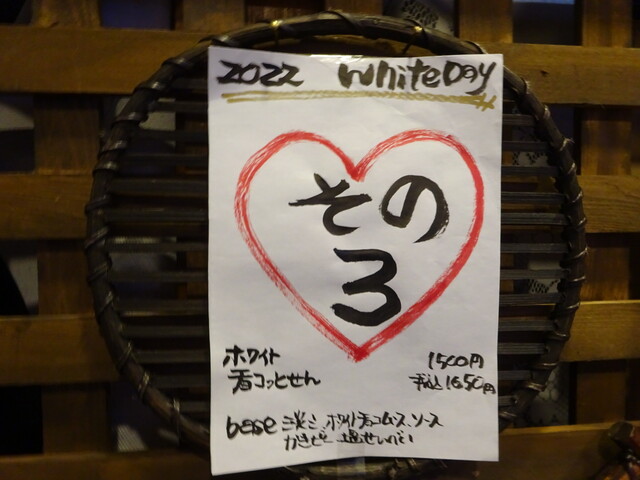 2022 White Day
その
3
ホワイト
香コッとせん
1500円
税込1650円
base ホワイチョコムース、ソース
かきピー 塩せんべい